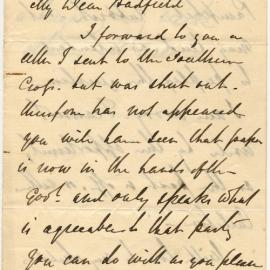 My Dear Hadfield
I forward to you a
letter I sent to the Southern
Cross. but was struck out.
therefore has not appeared
you will have seen that paper
is now in the hands of the
Govt. and only speaks what
is agreeable to that party
You can do with as you please